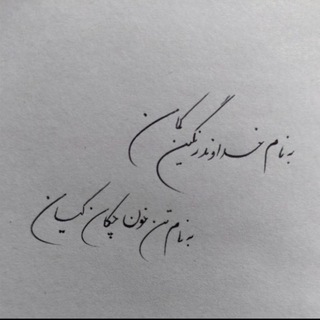 به نام خداوند رنگین کمان
به نام تن خون چکان کیان